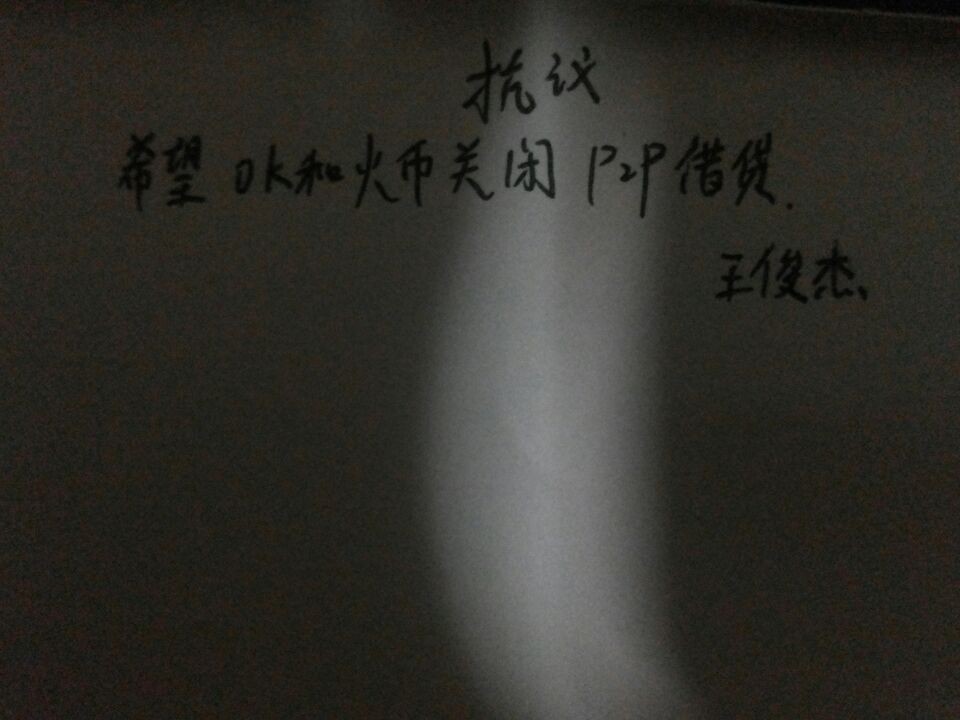 抗议
希望OK和火币关闭P2P借贷.
王俊杰